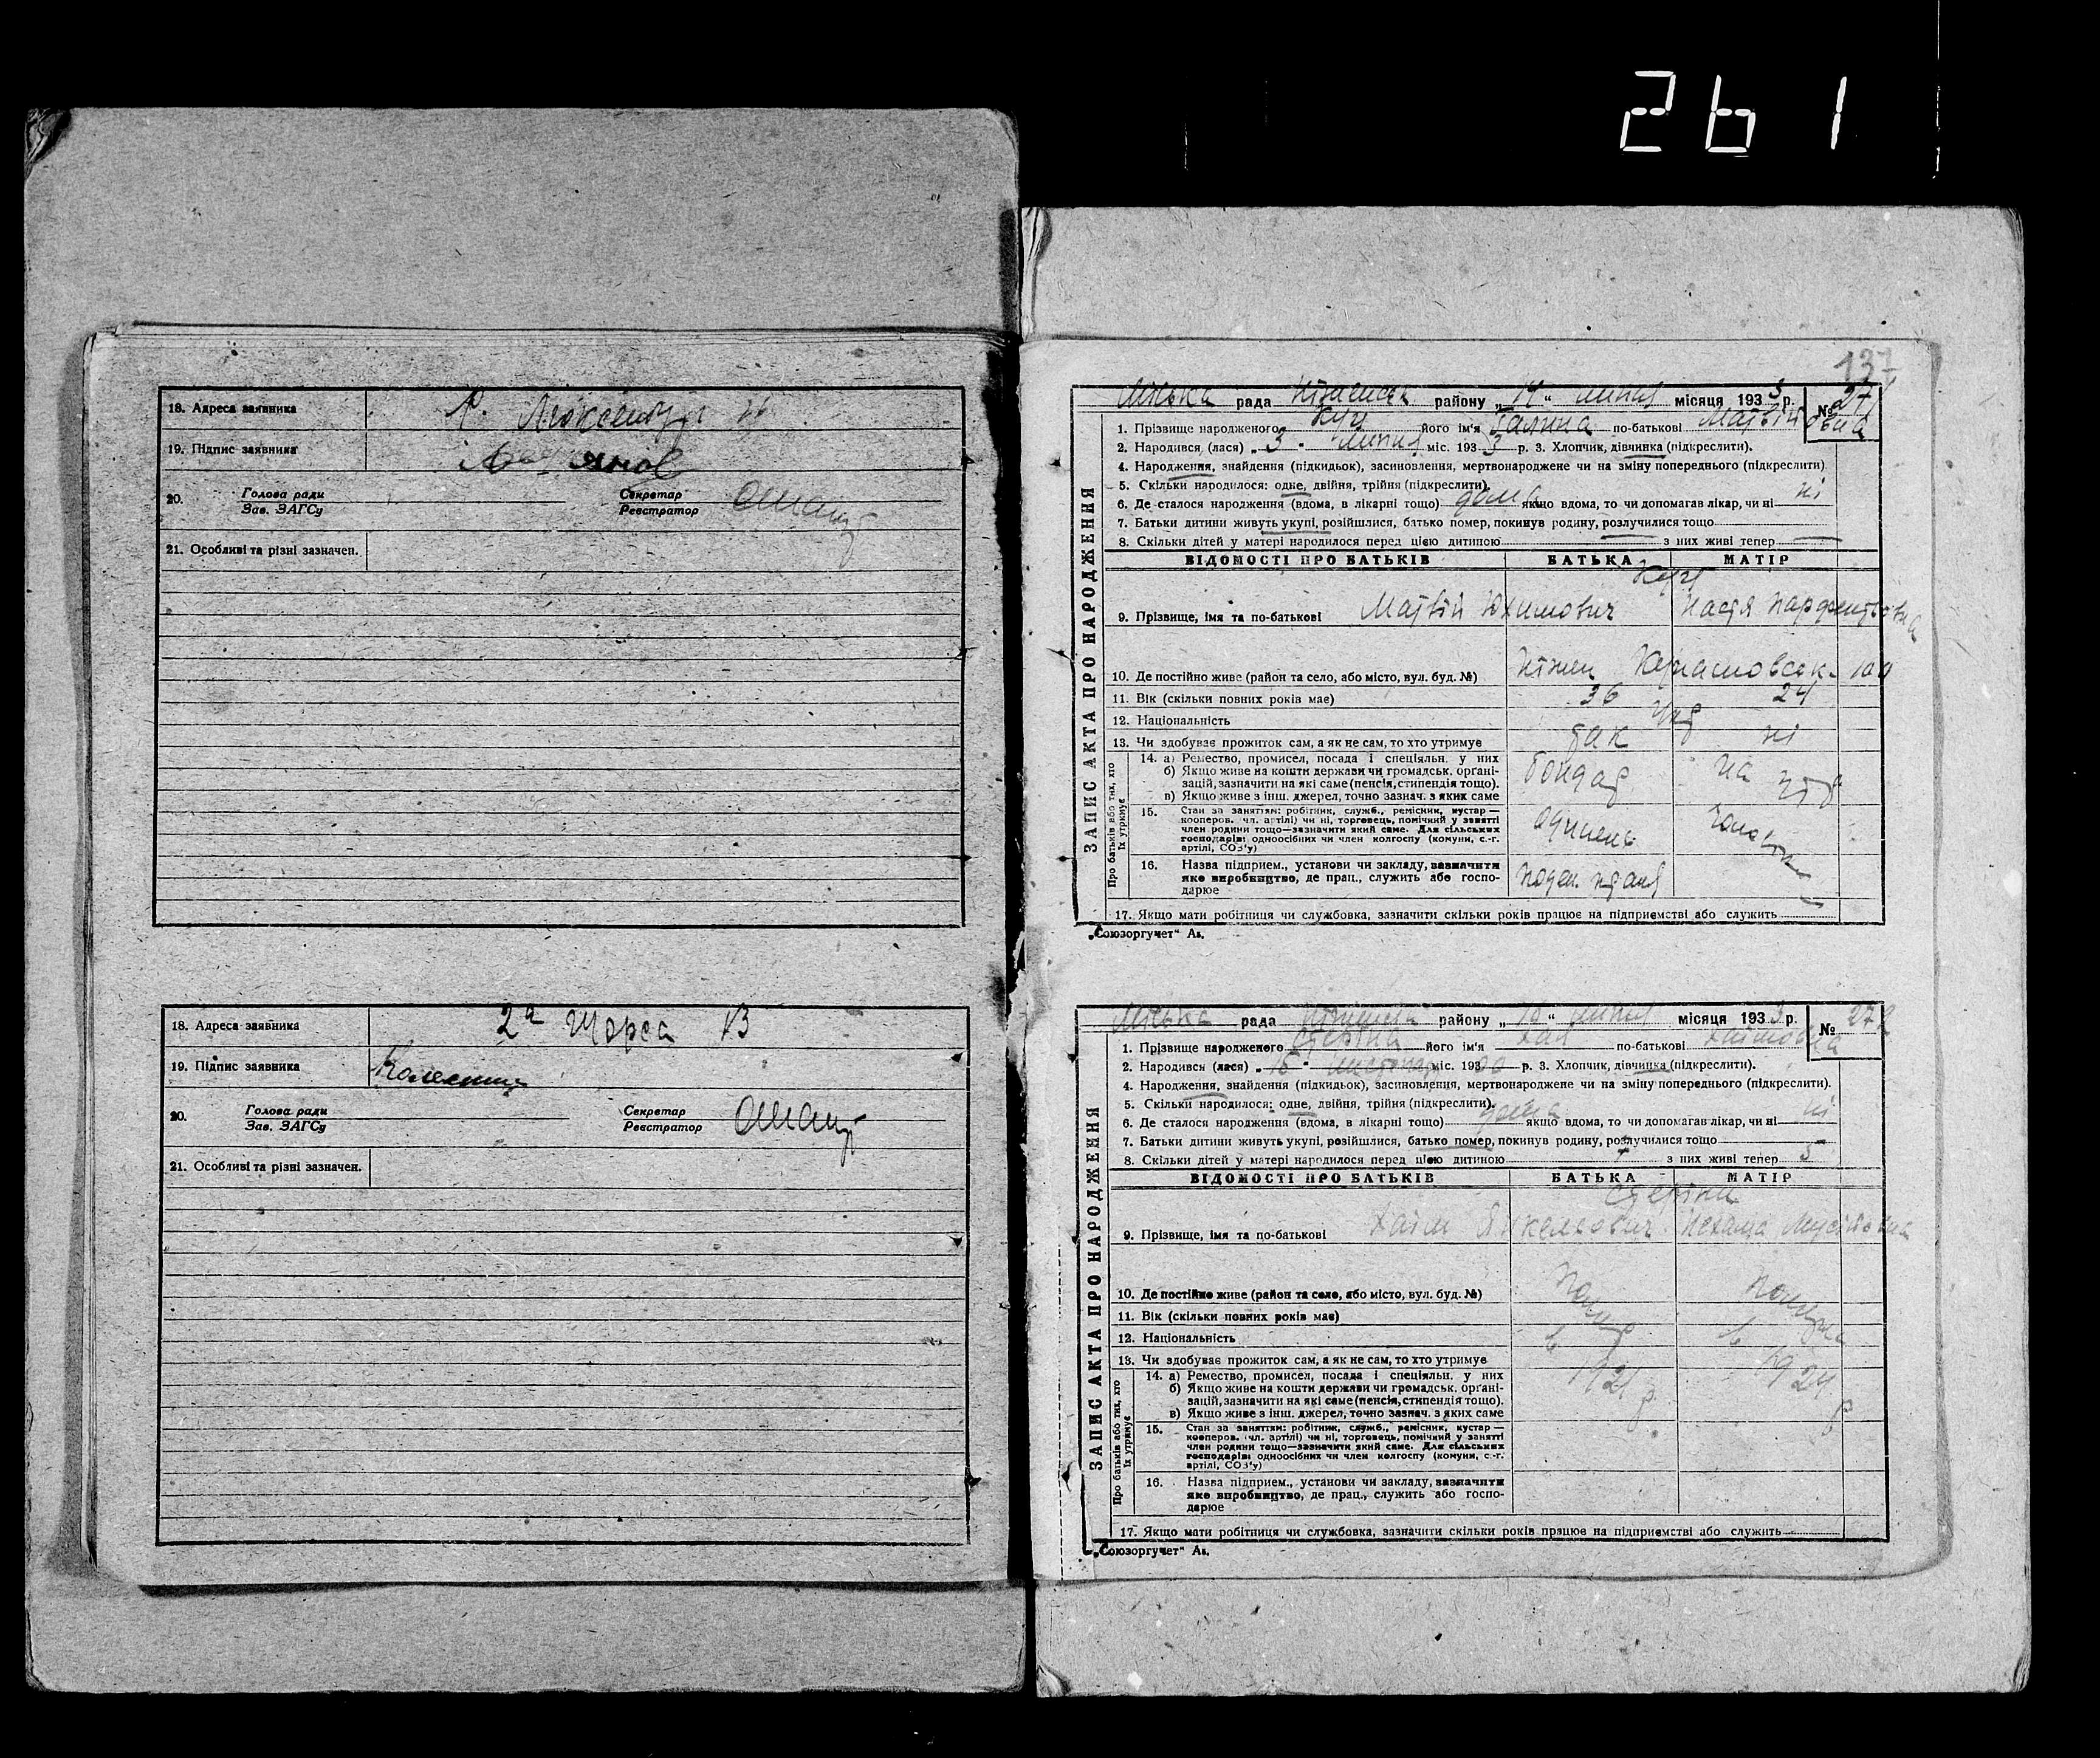 261
18. Адреса заявника Р. Люксембург
19. Підпис заявника
20. Голова ради Секретар
Зав. ЗАГСу Реєстратор
21. Особливі та різні зазначен.
18. Адреса заявника 2а Щорса 13
19. Підпис заявника
20. Голова ради Секретар
Зав. ЗАГСу Реєстратор
21. Особливі та різні зазначен.
137
ЗАПИС АКТА ПРО НАРОДЖЕННЯ
Міська рада Ніженськ району „14“ липня місяця 1933 р. № 271
1. Прізвище народженого Куц його ім'я Галина по-батькові Матвіївна
2. Народився (лася) „3“ липня міс. 1933 р. 3. Хлопчик, дівчинка (підкреслити).
4. Народження, знайдення (підкидьок), засиновлення, мертвонароджене чи на зміну попереднього (підкреслити)
5. Скільки народилося: одне, двійня, трійня (підкреслити).
6. Де сталося народження (вдома, в лікарні тощо) дома якщо вдома, то чи допомагав лікар, чи ні ні
7. Батьки дитини живуть укупі, розійшлися, батько помер, покинув родину, розлучилися тощо
8. Скільки дітей у матері народилося перед цією дитиною — з них живі тепер —
ВІДОМОСТІ ПРО БАТЬКІВ БАТЬКА МАТІР
Куц
9. Прізвище, імя та по-батькові Матвій Юхимович Настя Парфентьевна
10. Де постійно живе (район та село, або місто, вул. буд. №) Ніжен
11. Вік (скільки повних років має) 36 24
12. Національність Укр
13. Чи здобуває прожиток сам, а як не сам, то хто утримує так ні
Про батьків або тих, хто їх утримує
14. а) Ремество, промисел, посада і спеціяльн. у них бондар на утр
б) Якщо живе на кошти держави чи громадськ. орґані-
зацій, зазначити на які саме (пенсія, стипендія тощо).
в) Якщо живе з інш. джерел, точно зазнач. з яких саме
15. Стан за заняттям: робітник, служб., ремісник, кустар —
кооперов. (чл. артілі) чи ні, торговець, помічний у занятті
член родини тощо—зазначити який саме. Для сільських
господарів: одноосібних чи член колгоспу (комуни, с.-г.
артілі, СОЗ'у)
16. Назва підприєм., установи чи закладу, зазначити
яке виробництво, де прац., служить або госпо-
дарює
17. Якщо мати робітниця чи службовка, зазначити скільки років працює на підприємстві або служить
„Союзоргучет“ Ав.
ЗАПИС АКТА ПРО НАРОДЖЕННЯ
Міська рада району липня місяця 1933 р. № 272
1. Прізвище народженого його ім'я Хая по-батькові Хаімовна
2. Народився (лася) міс. 193 р. 3. Хлопчик, дівчинка (підкреслити).
4. Народження, знайдення (підкидьок), засиновлення, мертвонароджене чи на зміну попереднього (підкреслити).
5. Скільки народилося: одне, двійня, трійня (підкреслити).
6. Де сталося народження (вдома, в лікарні тощо) дома якщо вдома, то чи допомагав лікар, чи ні ні
7. Батьки дитини живуть укупі, розійшлися, батько помер, покинув родину, розлучилися тощо
8. Скільки дітей у матері народилося перед цією дитиною з них живі тепер
ВІДОМОСТІ ПРО БАТЬКІВ БАТЬКА МАТІР
9. Прізвище, імя та по-батькові Хаім Янкелевич Нехама
10. Де постійно живе (район та село, або місто, вул. буд. №) помер померла
11. Вік (скільки повних років має)
12. Національність в в
13. Чи здобуває прожиток сам, а як не сам, то хто утримує 1921 р 1924 р
Про батьків або тих, хто їх утримує
14. а) Ремество, промисел, посада і спеціяльн. у них
б) Якщо живе на кошти держави чи громадськ. орґані-
зацій, зазначити на які саме (пенсія, стипендія тощо).
в) Якщо живе з інш. джерел, точно зазнач. з яких саме
15. Стан за заняттям: робітник, служб., ремісник, кустар —
кооперов. (чл. артілі) чи ні, торговець, помічний у занятті
член родини тощо—зазначити який саме. Для сільських
господарів: одноосібних чи член колгоспу (комуни, с.-г.
артілі, СОЗ'у)
16. Назва підприєм., установи чи закладу, зазначити
яке виробництво, де прац., служить або госпо-
дарює
17. Якщо мати робітниця чи службовка, зазначити скільки років працює на підприємстві або служить
„Союзоргучет“ Ав.